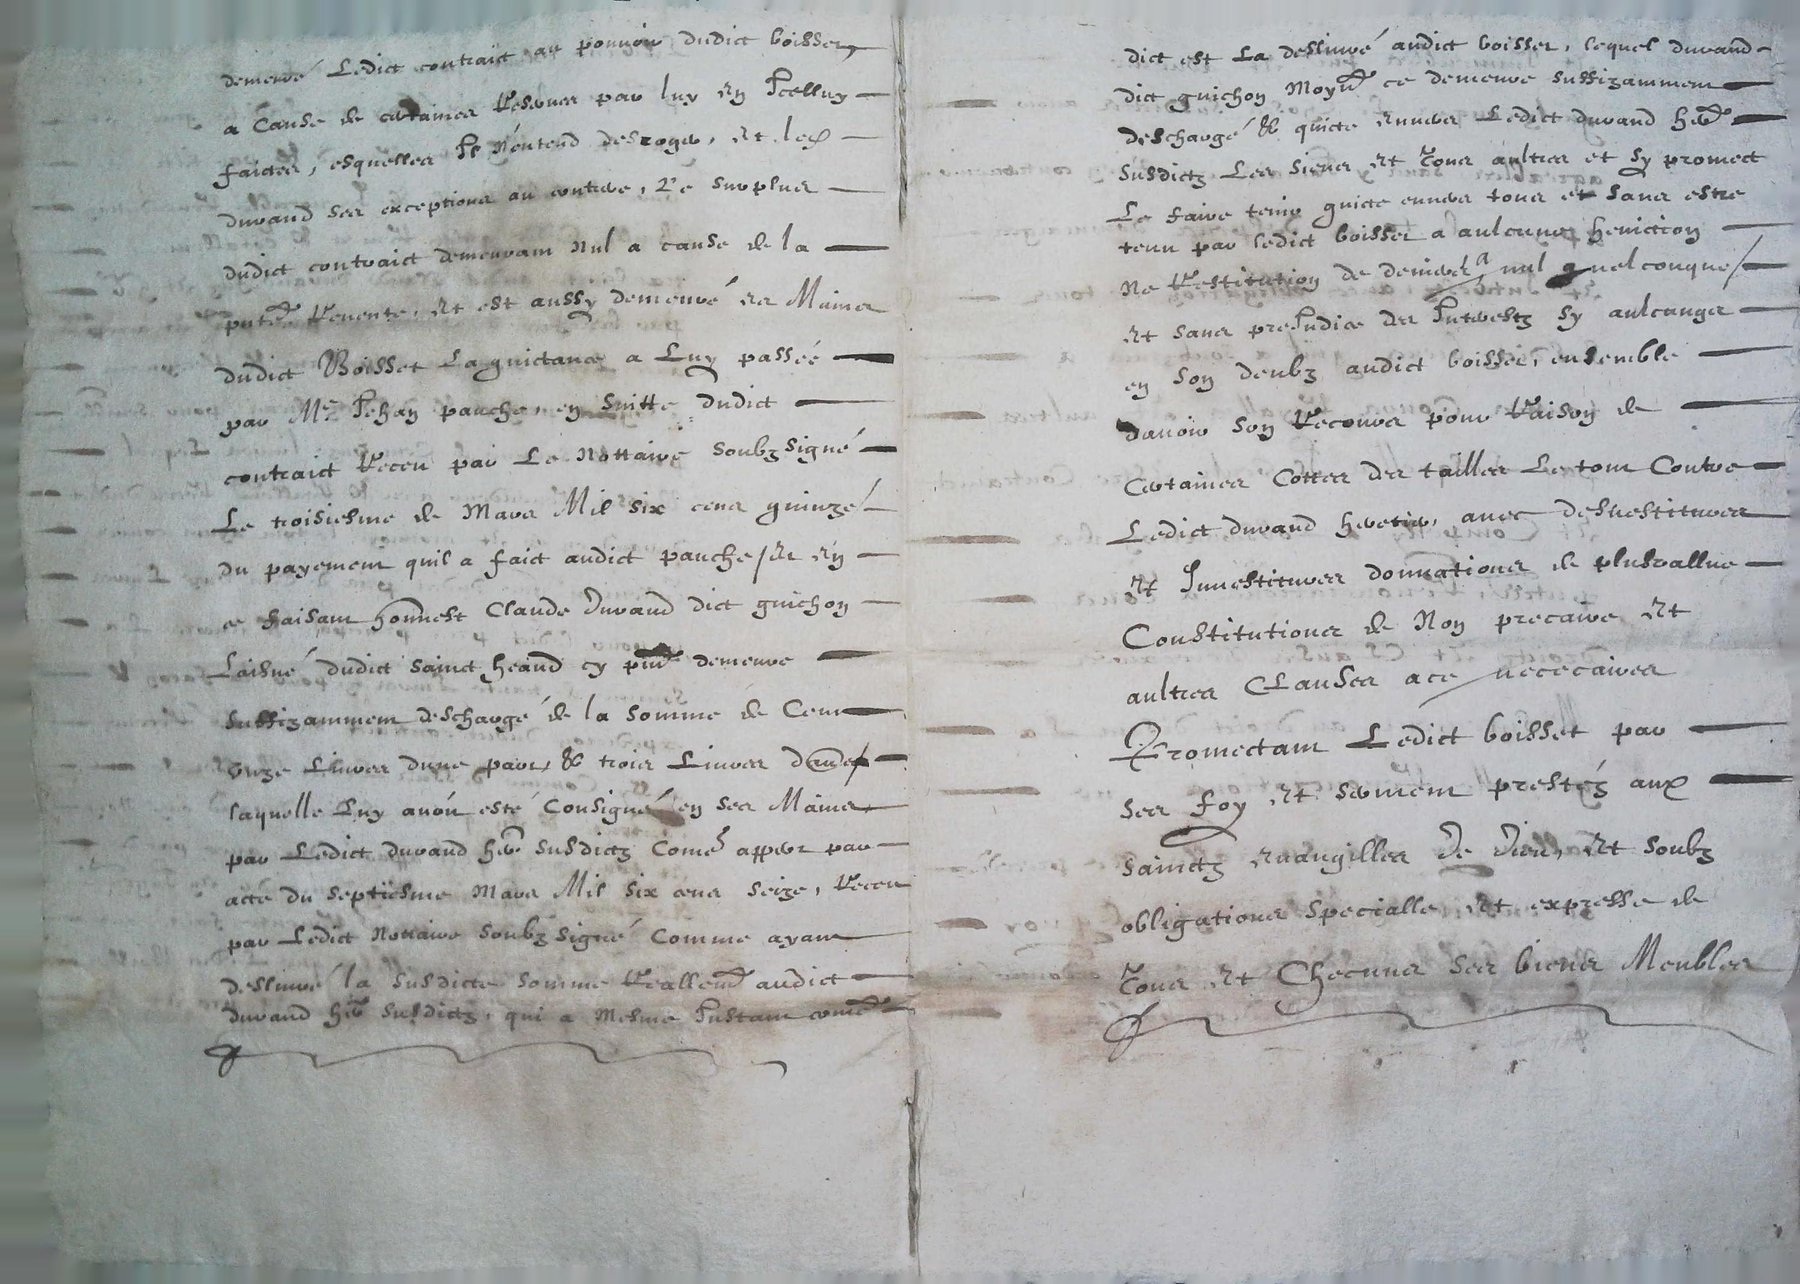 demeuré Ledict contraict au pouvoir dudict boisset,
a Cause de certaines Reserves par luy en Icelluy
faictes, esquelles Il N'entend desroger, et led
durand ses exceptions au contrere, Le surplus
dudict contraict demeurant nul a cause de la
pntte Revente, et est aussy demeuré es Mains
dudict Boisset La quictance a Luy passée
par Me Jehan pauche, en suitte dudict
contraict Receu par Le Nottaire soubzsigné
Le troisiesme de Mars Mil six cens quinze
du payement quil a faict audict pauche / Et en
ce faisant honnest Claude Durand dict guichon
Laisné dudict sainct heand cy pnt demeure
suffizamment deschargé de la somme de Cent
unze Livres dune part, & trois Livres daue/
laquelle Luy avoit esté Consignée en ses Mains
par Ledict durand her susdictz Come appert par
acte du septiesme Mars Mil six cens seize, Receu
par Ledict Nottaire soubzsigné Comme ayant
deslivré la susdicte somme Reallemt audict
durand her susdictz, qui a mesme Instant come
dict est La deslivré audict boisset, lequel durand
dict guichon Moynt ce demeure suffizamment
deschargé & quicte envers Ledict durand her
susdictz Les siens et Tous aultres et sy promect
Le faire tenir quicte envers tous et sans estre
tenu par ledict boisset a aulcune heviction
Ne Restitution de deniers a nul quelconque/
et sans preJudice des Interestz sy aulcungs
en son deubz audict boisset, ensemble
davoir son Recours pour Raison de
Certaines Cottes des tailles Le tout Contre
Ledict durand heretier, avec desvestitures
et Investitures donnations de plusvallue
Constitutions de Non precaire et
aultres Clauses a ce nececaires
Promectant Ledict boisset par
ses foy et serment prestéz aux
sainctz evangilles De Dieu, et soubz
obligations specialle et expresse de
Tous et Checuns ses biens Meubles